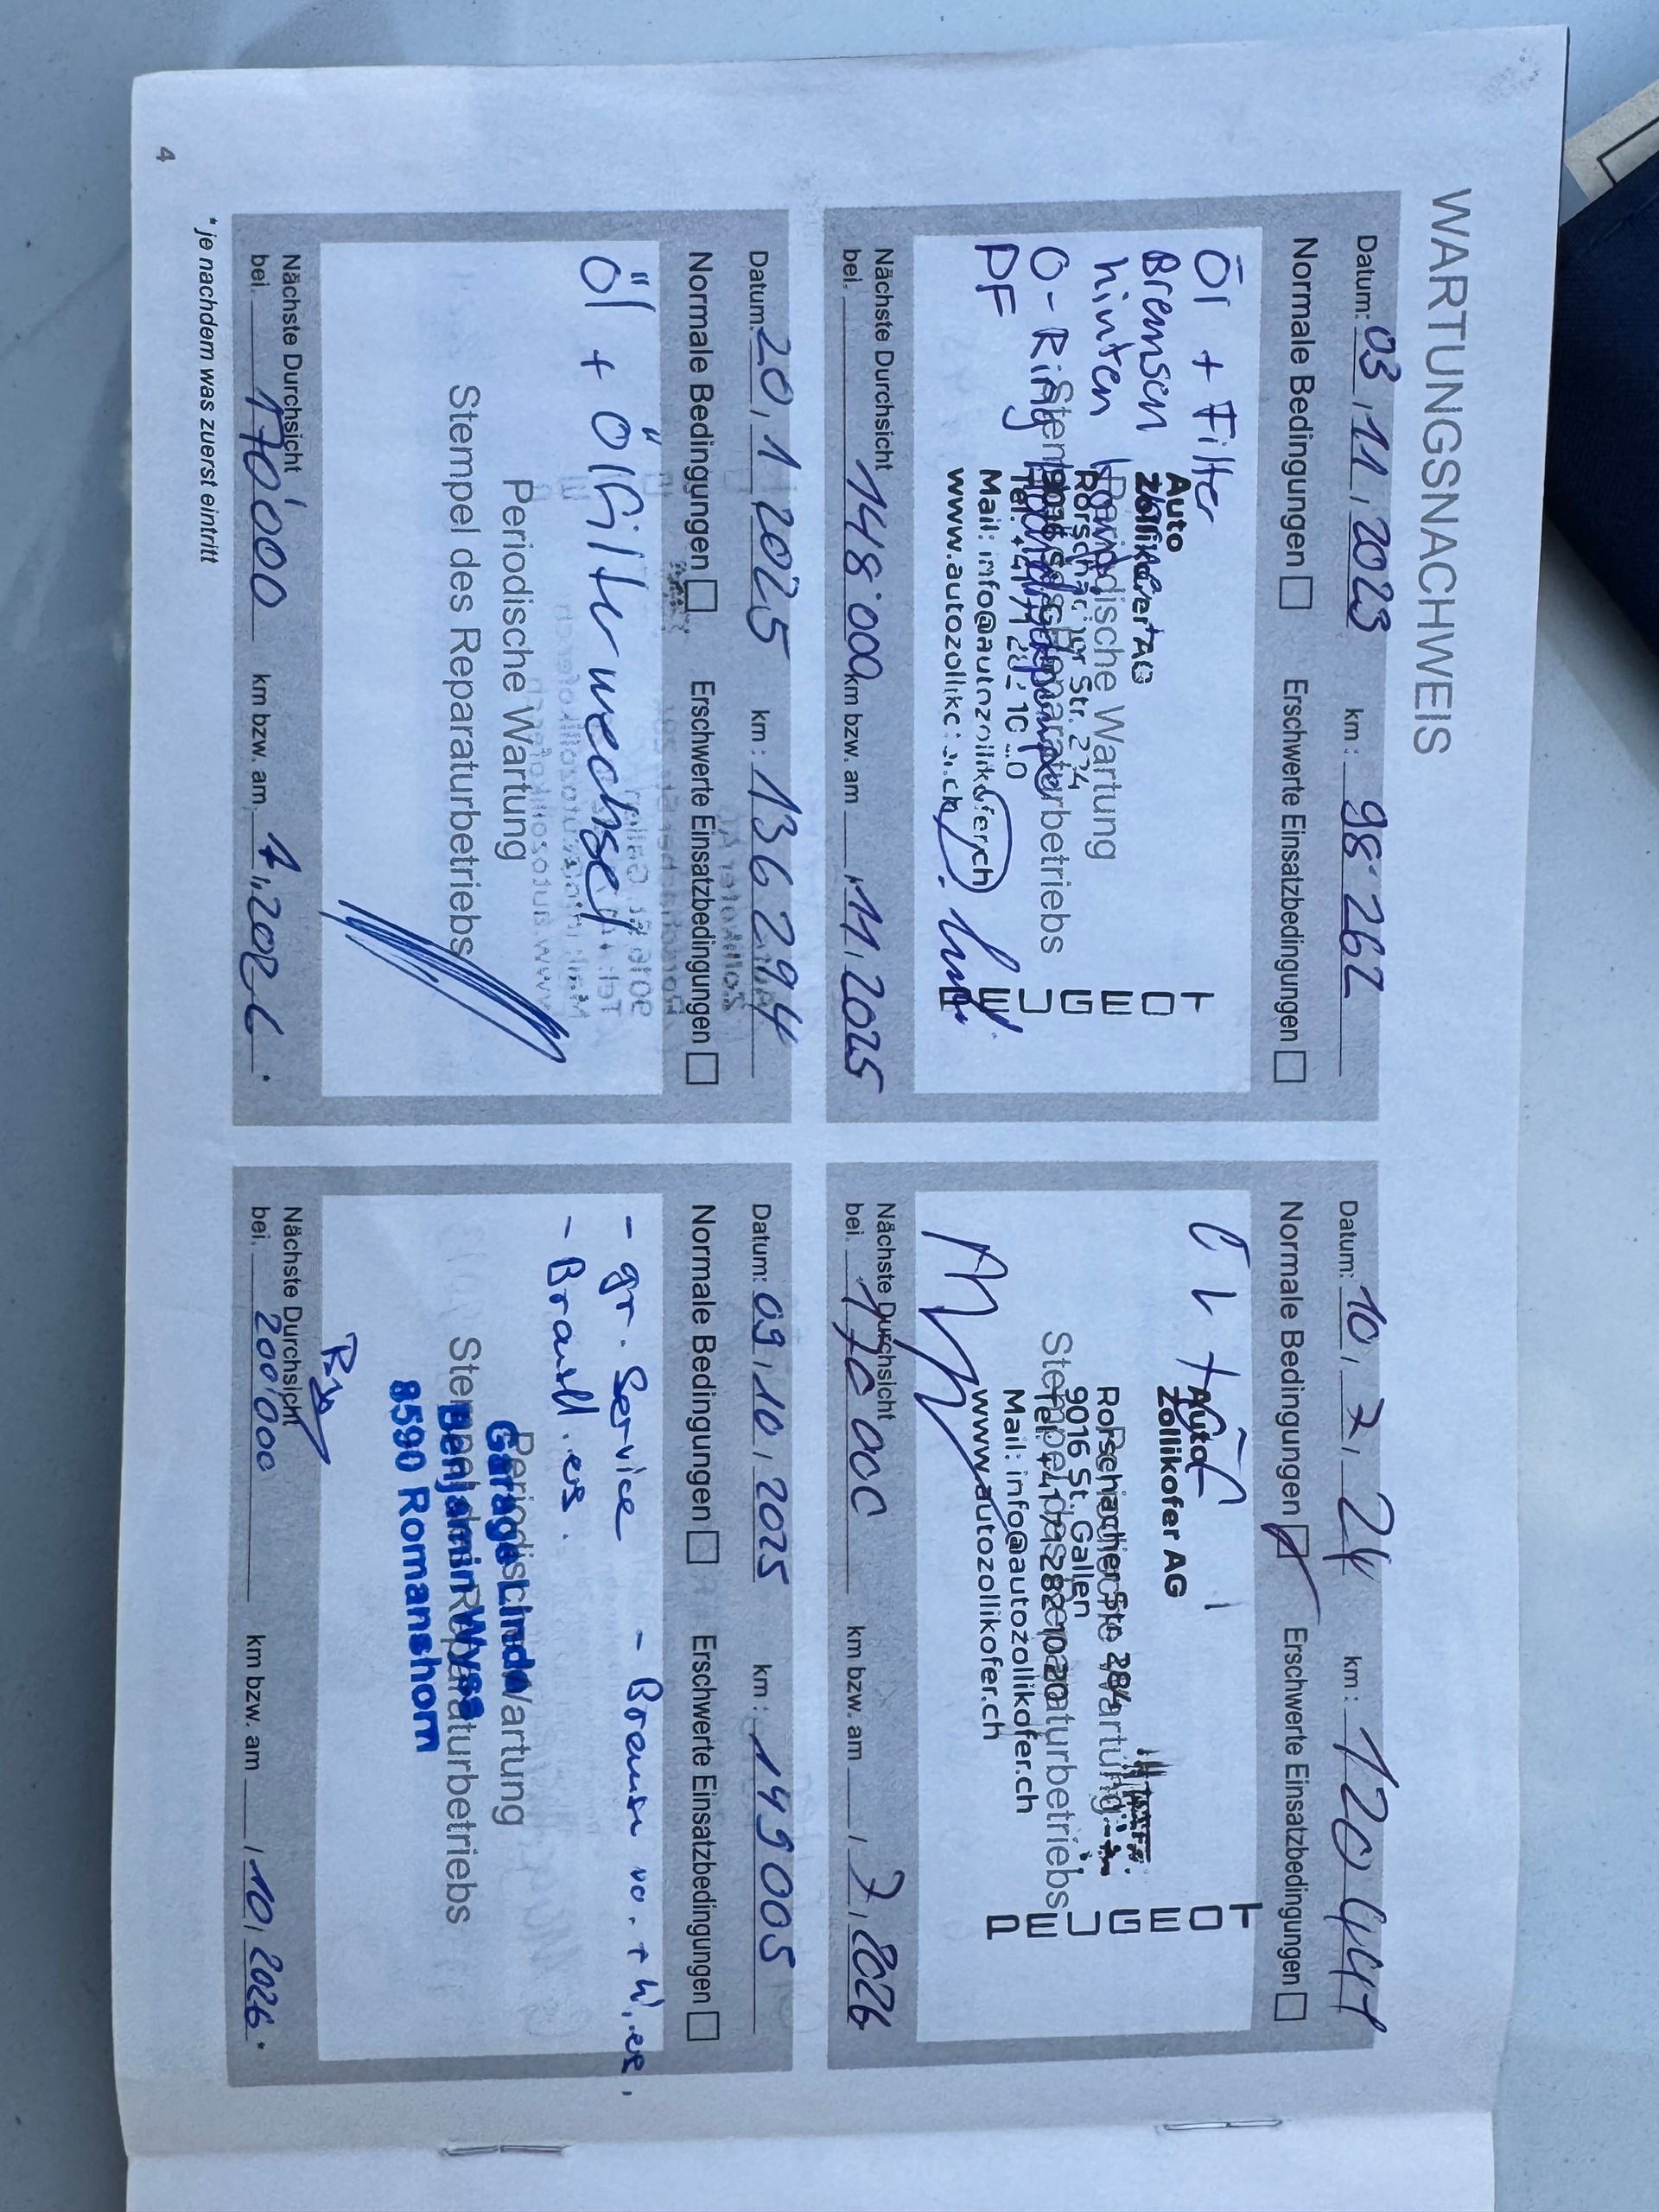 WARTUNGSNACHWEIS
Datum: 03, 11, 2023 km: 98'262
Normale Bedingungen Erschwerte Einsatzbedingungen
Öl + Filter
Bremsen
hinten
O-Ring
PF
Auto
Periodische Wartung
Stempel des Reparaturbetriebs
Mail: info@autozollikofer.ch
www.autozollikofer.ch
PEUGEOT
Nächste Durchsicht
bei. 148'000 km bzw. am , 11, 2025
Datum: 10, 7, 24 km: 120 441
Normale Bedingungen Erschwerte Einsatzbedingungen
Auto
Zollikofer AG
Rorschacher Str. 284
9016 St. Gallen
Tel. +41 71 282 10 20
Mail: info@autozollikofer.ch
www.autozollikofer.ch
Periodische Wartung
Stempel des Reparaturbetriebs
PEUGEOT
Nächste Durchsicht
bei. 170 000 km bzw. am , 7, 2026
Datum: 20, 1, 2025 km: 136294
Normale Bedingungen Erschwerte Einsatzbedingungen
Öl + Ölfilterwechsel
Periodische Wartung
Stempel des Reparaturbetriebs
Nächste Durchsicht
bei. 170'000 km bzw. am 1, 2026 *
Datum: 09, 10, 2025 km: 149005
Normale Bedingungen Erschwerte Einsatzbedingungen
- gr. Service - Bremsen vo. + hi. ers.
- Brausfl. ers.
Periodische Wartung
Stempel des Reparaturbetriebs
Garage Linde
Benjamin Wyss
8590 Romanshorn
Nächste Durchsicht
bei. 200'000 km bzw. am , 10, 2026 *
* je nachdem was zuerst eintritt
4